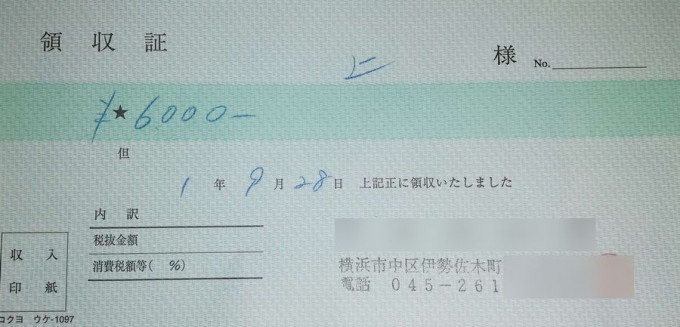 領収証
上 様 No.
¥★6000-
但
1年9月28日 上記正に領収いたしました
内訳
税抜金額
消費税額等( %)
収入
印紙
横浜市中区伊勢佐木町
電話 045-261
コクヨ ウケ-1097